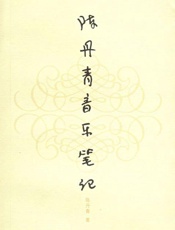 陈丹青音乐笔记
陈丹青 著